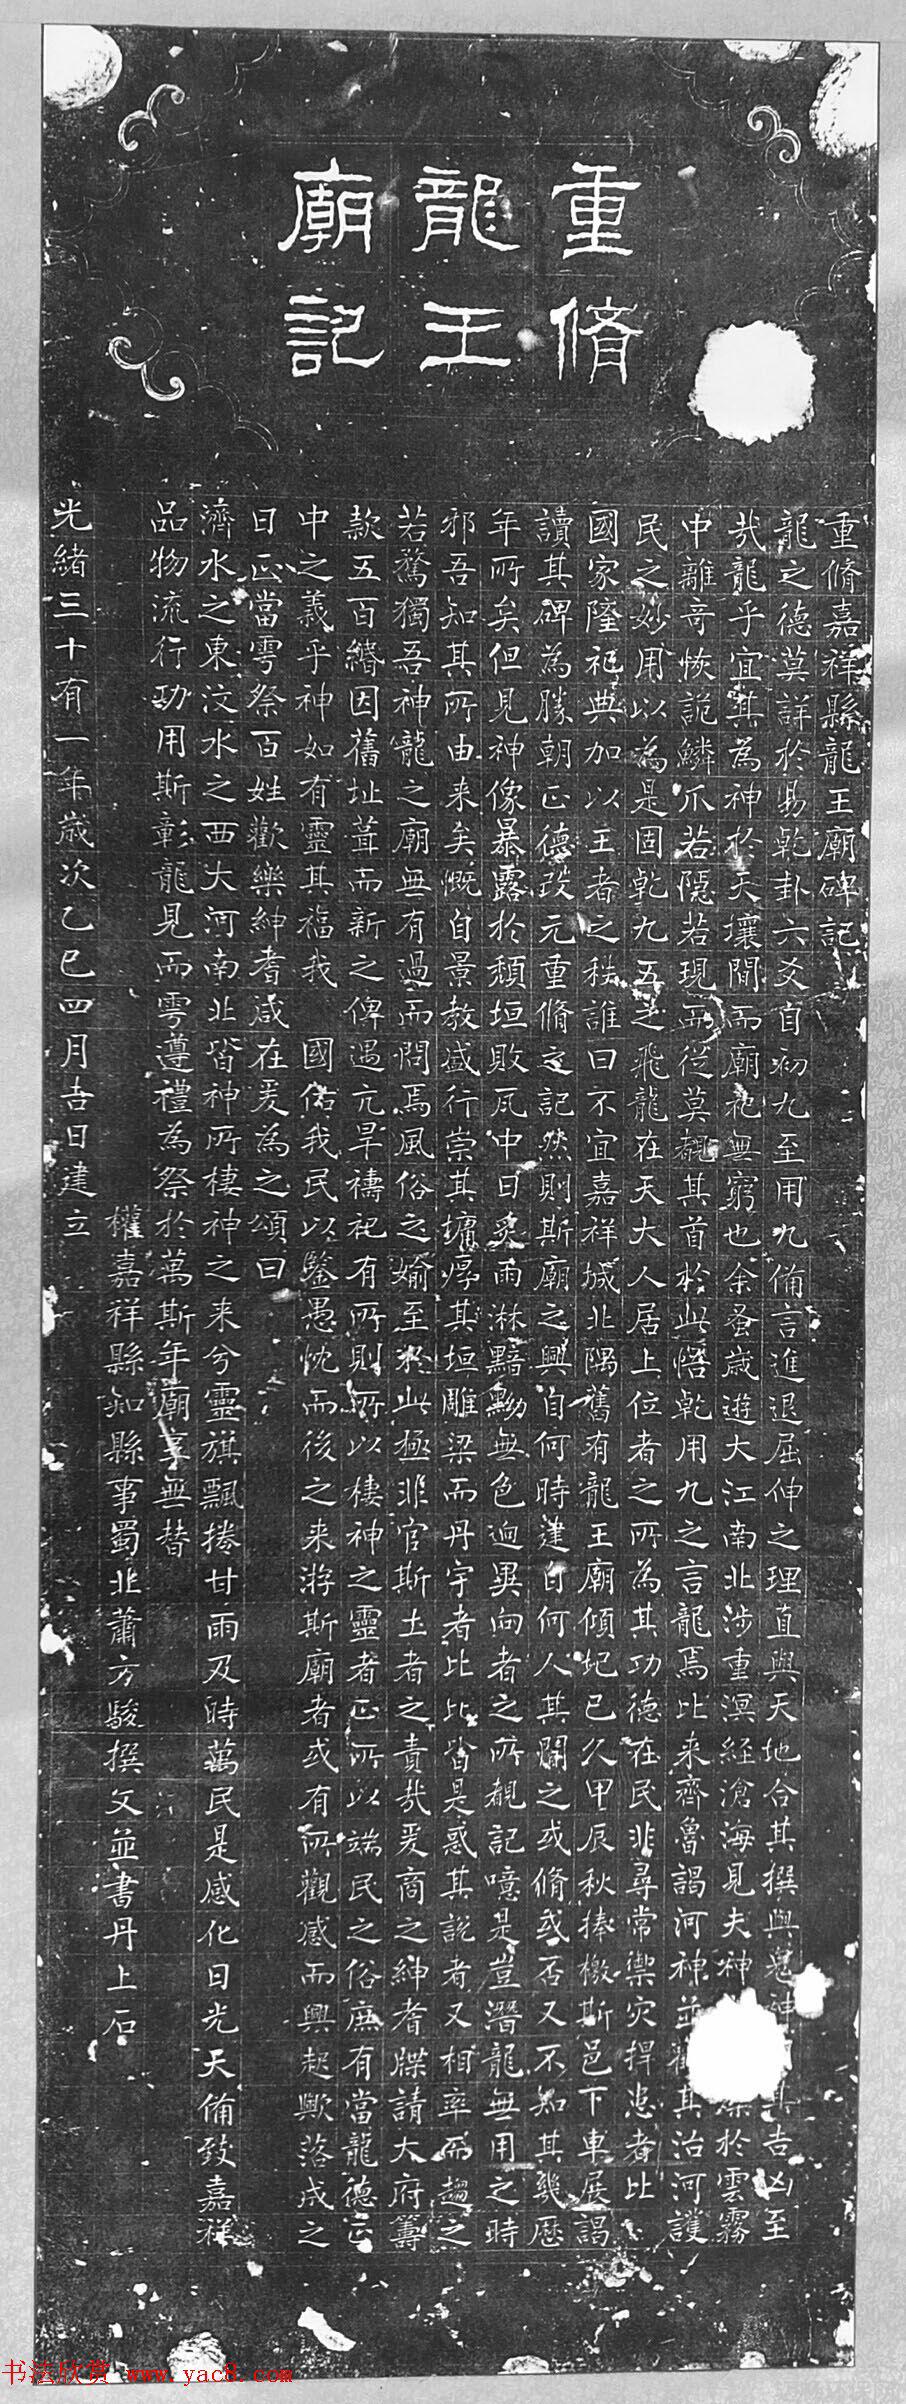 重脩
龍王
廟記
重脩嘉祥縣龍王廟碑記
龍之德莫詳於易乾卦六爻自初九至用九備言進退屈伸之理直與天地合其撰與鬼神其吉凶至
哉龍乎宜其為神於天壤間而廟祀無窮也余蚤歲遊大江南北涉重溟經滄海見夫神於雲霧
中離奇恢詭鱗爪若隱若現而從莫覩其首於此悟乾用九之言龍焉比来齊魯謁河神並其治河護
民之妙用以為是固乾九五之飛龍在天大人居上位者之所為其功德在民非尋常禦灾捍患者比
國家隆祀典加以王者之秩誰曰不宜嘉祥城北隅舊有龍王廟傾圮已久甲辰秋捧檄斯邑下車展謁
讀其碑為勝朝正德改元重脩之記然則斯廟之興自何時建自何人其間之或脩或否又不知其幾歷
年所矣但見神像暴露於頹垣敗瓦中日炙雨淋黯黝無色逈異向者之所覩記噫是豈潛龍無用之時
邪吾知其所由来矣慨自景教盛行崇其墉厚其垣雕梁而丹宇者比比皆是惑其說者又相率而趨之
若騖獨吾神龍之廟無有過而問焉風俗之媮至於此極非官斯土者之責哉爰商之紳耆牒請大府籌
款五百緡因舊址葺而新之俾遇亢旱禱祀有所則所以棲神之靈者正所以端民之俗庶有當龍德正
中之義乎神如有靈其福我 國佑我民以鑒愚忱而後之来游斯廟者或有所觀感而興起歟落成之
日正當雩祭百姓歡樂紳耆咸在爰為之頌曰
濟水之東汶水之西大河南北皆神所棲神之来兮靈旗飄捲甘雨及時萬民是感化日光天備致嘉祥
品物流行功用斯彰龍見而雩遵禮為祭於萬斯年廟享無替
權嘉祥縣知縣事蜀北蕭方駿撰文並書丹上石
光緒三十有一年歲次乙巳四月吉日建立
书法欣赏 www.yac8.com